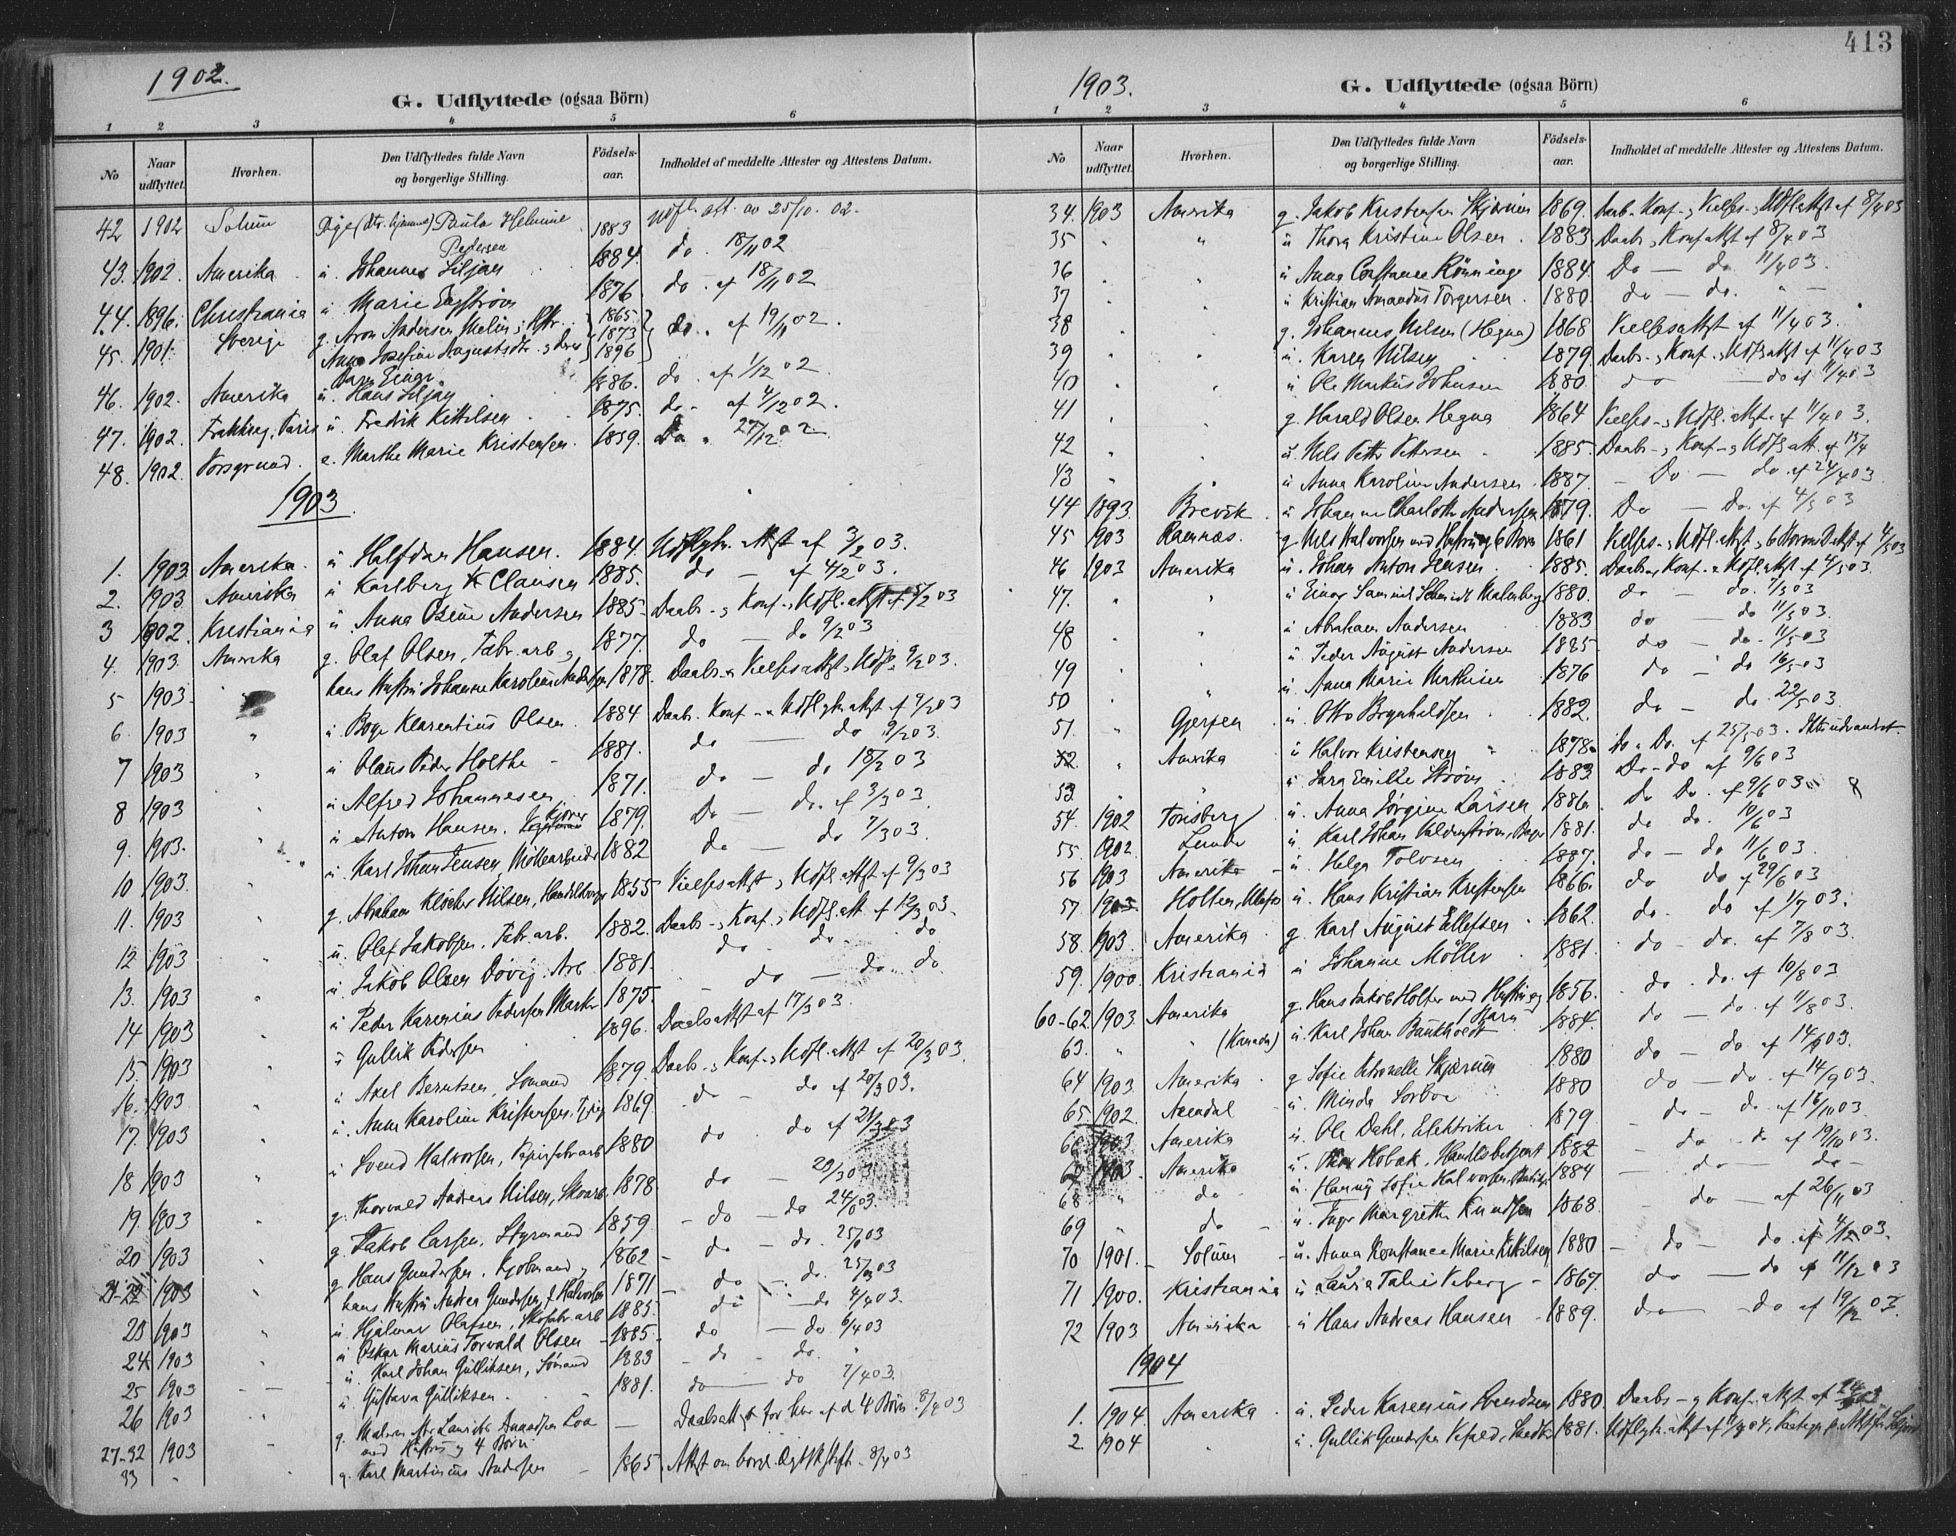 413
1902.
G. Udflyttede (ogsaa Börn)
1 2 3 4 5 6
No
Naar udflyttet.
Hvorhen.
Den Udflyttedes fulde Navn og borgerlige Stilling.
Födsels-aar.
Indholdet af meddelte Attester og Attestens Datum.
42 1902 Solum Pige Paula Helmine Pedersen 1883 Udfl. att. av 25/10. 02.
43. 1902. Amerika u. Johannes Siljan 1884. do. 18/11 02
44. 1896. Christiania u. Marie Engström 1876 do. af 18/11 02
45. 1901. Sverige g. Aron Andersen Melin, 1865. do. af 19/11 02.
Anna Josefine Augustsdtr. 1873
Barn Einar 1896
46. 1902. Amerika u. Hans Siljan 1886. do. af 1/12 02
47. 1902. Frankrig, Paris u. Fredrik Kittilsen 1875. do. af 4/12 02.
48. 1902. Porsgrund. e. Marthe Marie Kristensen. 1859. Do. 27/12 02
1903.
1. 1903 Amerika. u. Halfdan Hansen. 1884. Udflytn. attst af 3/2 03.
2. 1903 Amerika u. Karlberg K Clausen 1885. do — af 4/2 03.
3 1902. Kristiania u. Anna Osine Andersen 1885. Daabs-, Konf-, Udfl. attst af 5/2 03
4. 1903. Amerika g. Olaf Olsen, Fabr. arb. 1877. do — do 9/2 03
5 1903. hans Hustru Johanne Karoline Andersen 1878. Daabs- Vielsesattst, Udfl. 9/2 03.
6. 1903 u. Boye Klarentius Olsen. 1884 Daabs. Konf- Udflytn attst af 9/2 03
7 1903 u. Olaus Peder Holthe 1881. do — do 9/2 03.
8 1903 u. Alfred Johannesen 1871. do — do 18/2 03
9. 1903. u. Anton Hansen. 1879. Do — Do. af 3/3 03.
10 1903. u. Karl Johan Jensen, Möllearbeider 1882 do — do 7/3 03.
11. 1903 g. Abraham Klöcker Nilsen, Handelsborger 1855 Vielsesattst, Udfl. attst af 9/3 03
12 1903 u. Olaf Jakobsen. Fabr. arb. 1882. Daabs-, Konf-, Udfl. att. af 12/3 03.
13. 1903 u. Jakob Olsen Dövig. Arb 1881. do do do
14 1903 u. Peder Karenius Pedersen 1875. do — do. do
15. 1903 u. Gullik Pedersen 1896. Daabsattst af 17/3 03.
16. 1903 u. Axel Berntsen, Sömand 1879. Daabs-, Konf-, Udfl. attst af 20/3 03.
17. 1903 u. Anna Karoline Kristensen. 1869 do — do af 20/3 03.
18 1903 u. Svend Halvorsen, Papirfabr. arb 1880 do. do af 21/3 03
19. 1903 g. Thorvald Anders Nilsen, 1878 do — 23/3 03
20 1903 g. Jakob Larsen, Styrmand 1859. do — do 24/3 03.
21-22 1903 g. Hans Gundersen. 1862 do — do. 25/3 03
hans Hustru Andrea Gundersen, f. Halvorsen 1871 do — do. 25/3 03
23 1903 u. Hjalmar Olafsen, Skofabr. arb 1885. do — do 4/4 03.
24 1903 u. Oskar Marius Torvald Olsen 1885 do — do. 6/4 03
25 1903 u. Karl Johan Gulliksen, Sömand 1883 do — do.
26 1903 u. Gustava Gulliksen. 1881. do — do 7/4 03.
27-32 1903 g. Mattr. Laurits Loa med Hustru og 4 Börn Daabsattst for 4 Börn. 8/4 03
33 g. Karl Martinius Andersen 1865. Attst om borgl. 8/4 03
1903.
G. Udflyttede (ogsaa Börn)
1 2 3 4 5 6
No
Naar udflyttet.
Hvorhen.
Den Udflyttedes fulde Navn og borgerlige Stilling.
Födsels-aar.
Indholdet af meddelte Attester og Attestens Datum.
34. 1903 Amerika g. Jakob Kristensen Skjærum 1869. Daab. Konf-, Vielses-, Udfl. attst af 8/4 03
35 u Thora Kristine Olsen. 1883 Daabs, Konf attst af 8/4 03
36 u Anna Constance Rönninge 1884. Do — do. 11/4 03.
37 u Kristian Amandus Torgersen. 1880. do — do.
38 g. Johannes Nilsen (Hegna) 1868 Vielsesattst af 11/4 03.
39 u. Karen Nilsen 1879. Daabs-, Konf-, Udfl. attst af 11/4 03
40 u Ole Markus Johnsen 1880 do — do af 11/4 03
41 g. Harald Olsen Hegna 1864 Vielses-, Udfl. attst. af 11/4 03.
42 u. Nils Petter Pettersen 1885. Daabs-, Konf-, Udfl. att. af 15/4
43 u. Anna Karoline Andersen 1887. Do — do. af 24/4 03
44 1893. Brevik u Johanne Charlotte Andersen 1879. Do — Do. af 4/5 03
45 1903 Ramnæs. g. Nils Halvorsen med Hustru og 6 Börn 1861 Vielses-, Udfl. attst, 6 attst af 4/5 03
46 1903 Amerika u. Johan Anton Jensen 1885. Daabs-, Konf- Udfl. attst af 4/5 03.
47. u Einar Samuel Schmidt Malmberg 1880. do — do. 7/5 03
48 u Abraham Andersen 1883 do — do 11/5 03.
49 u. Peder August Andersen 1885 do — do. 11/5 03
50 u. Anna Marie Mathiesen 1876 do — do 16/5 03
51. Gjerpen u. Otto Brynhildsen 1882. do — do. 22/5 03.
52. Amerika u Halvor Kristensen 1878. Do. Do. af 25/5 03. Ikke udvandret
53 u Sara Emilie Ström 1883. Do — do af 9/6 03
54. 1902 Tönsberg u. Anna Jörgine Larsen 1886. Do Do. af 9/6 03
55. 1902. Lunde u. Karl Johan Valderström, Bager 1881. do do. 10/6 03
56 1903 Amerika u. Helge Tolvsen 1887. do — do 11/6 03.
57 1903 Holten, u. Hans Kristian Kristensen 1866. do do af 29/6 03
58. 1903. Amerika. g. Karl August Ellefsen 1862. do. do af 1/7 03.
59. 1900. Kristiania u. Johanne Möller 1881. do — do. af 7/8 03.
60-62 1903. Amerika g. Hans Jakob Holter med Hustru og Barn 1856. do. do. af 10/8 03
63. (Kanada) u. Karl Johan 1884. do — do. af 11/8 03.
64 1903. Amerika g. Sofie Petronelle Skjærum 1880 do — do. af 14/9 03.
65 1902. Arendal u. Minda Sorboe 1880 do — do. af 14/9 03.
66 1903 Amerika u. Ole Dahl, Elektriker 1879 do — do af 16/10 03.
67 1903. Amerika u. Thor Kobæk, Handelsbetjent 1882 do — do af 19/10 03.
68 do u. Hanny Sofie Halvorsen, 1884 do — do
69 do u. Inger Margrethe Knudsen 1868. do — af 26/11 03
70 1901. Solum u. Anna Konstance Marie Kittilsen 1880 do — do af 4/12 03.
71 1900. Kristiania u Laura Talie Viberg 1867. do — do af 11/12 03
72 1903 Amerika u Hans Andreas Hansen 1889. do — do af 19/12 03.
1904
1. 1904. Amerika u. Peder Karenius Svendsen 1880. Daabs- og Konf. attst af
2. 1904 u. Gullik Gundersen 1881. Udflytn. attst af